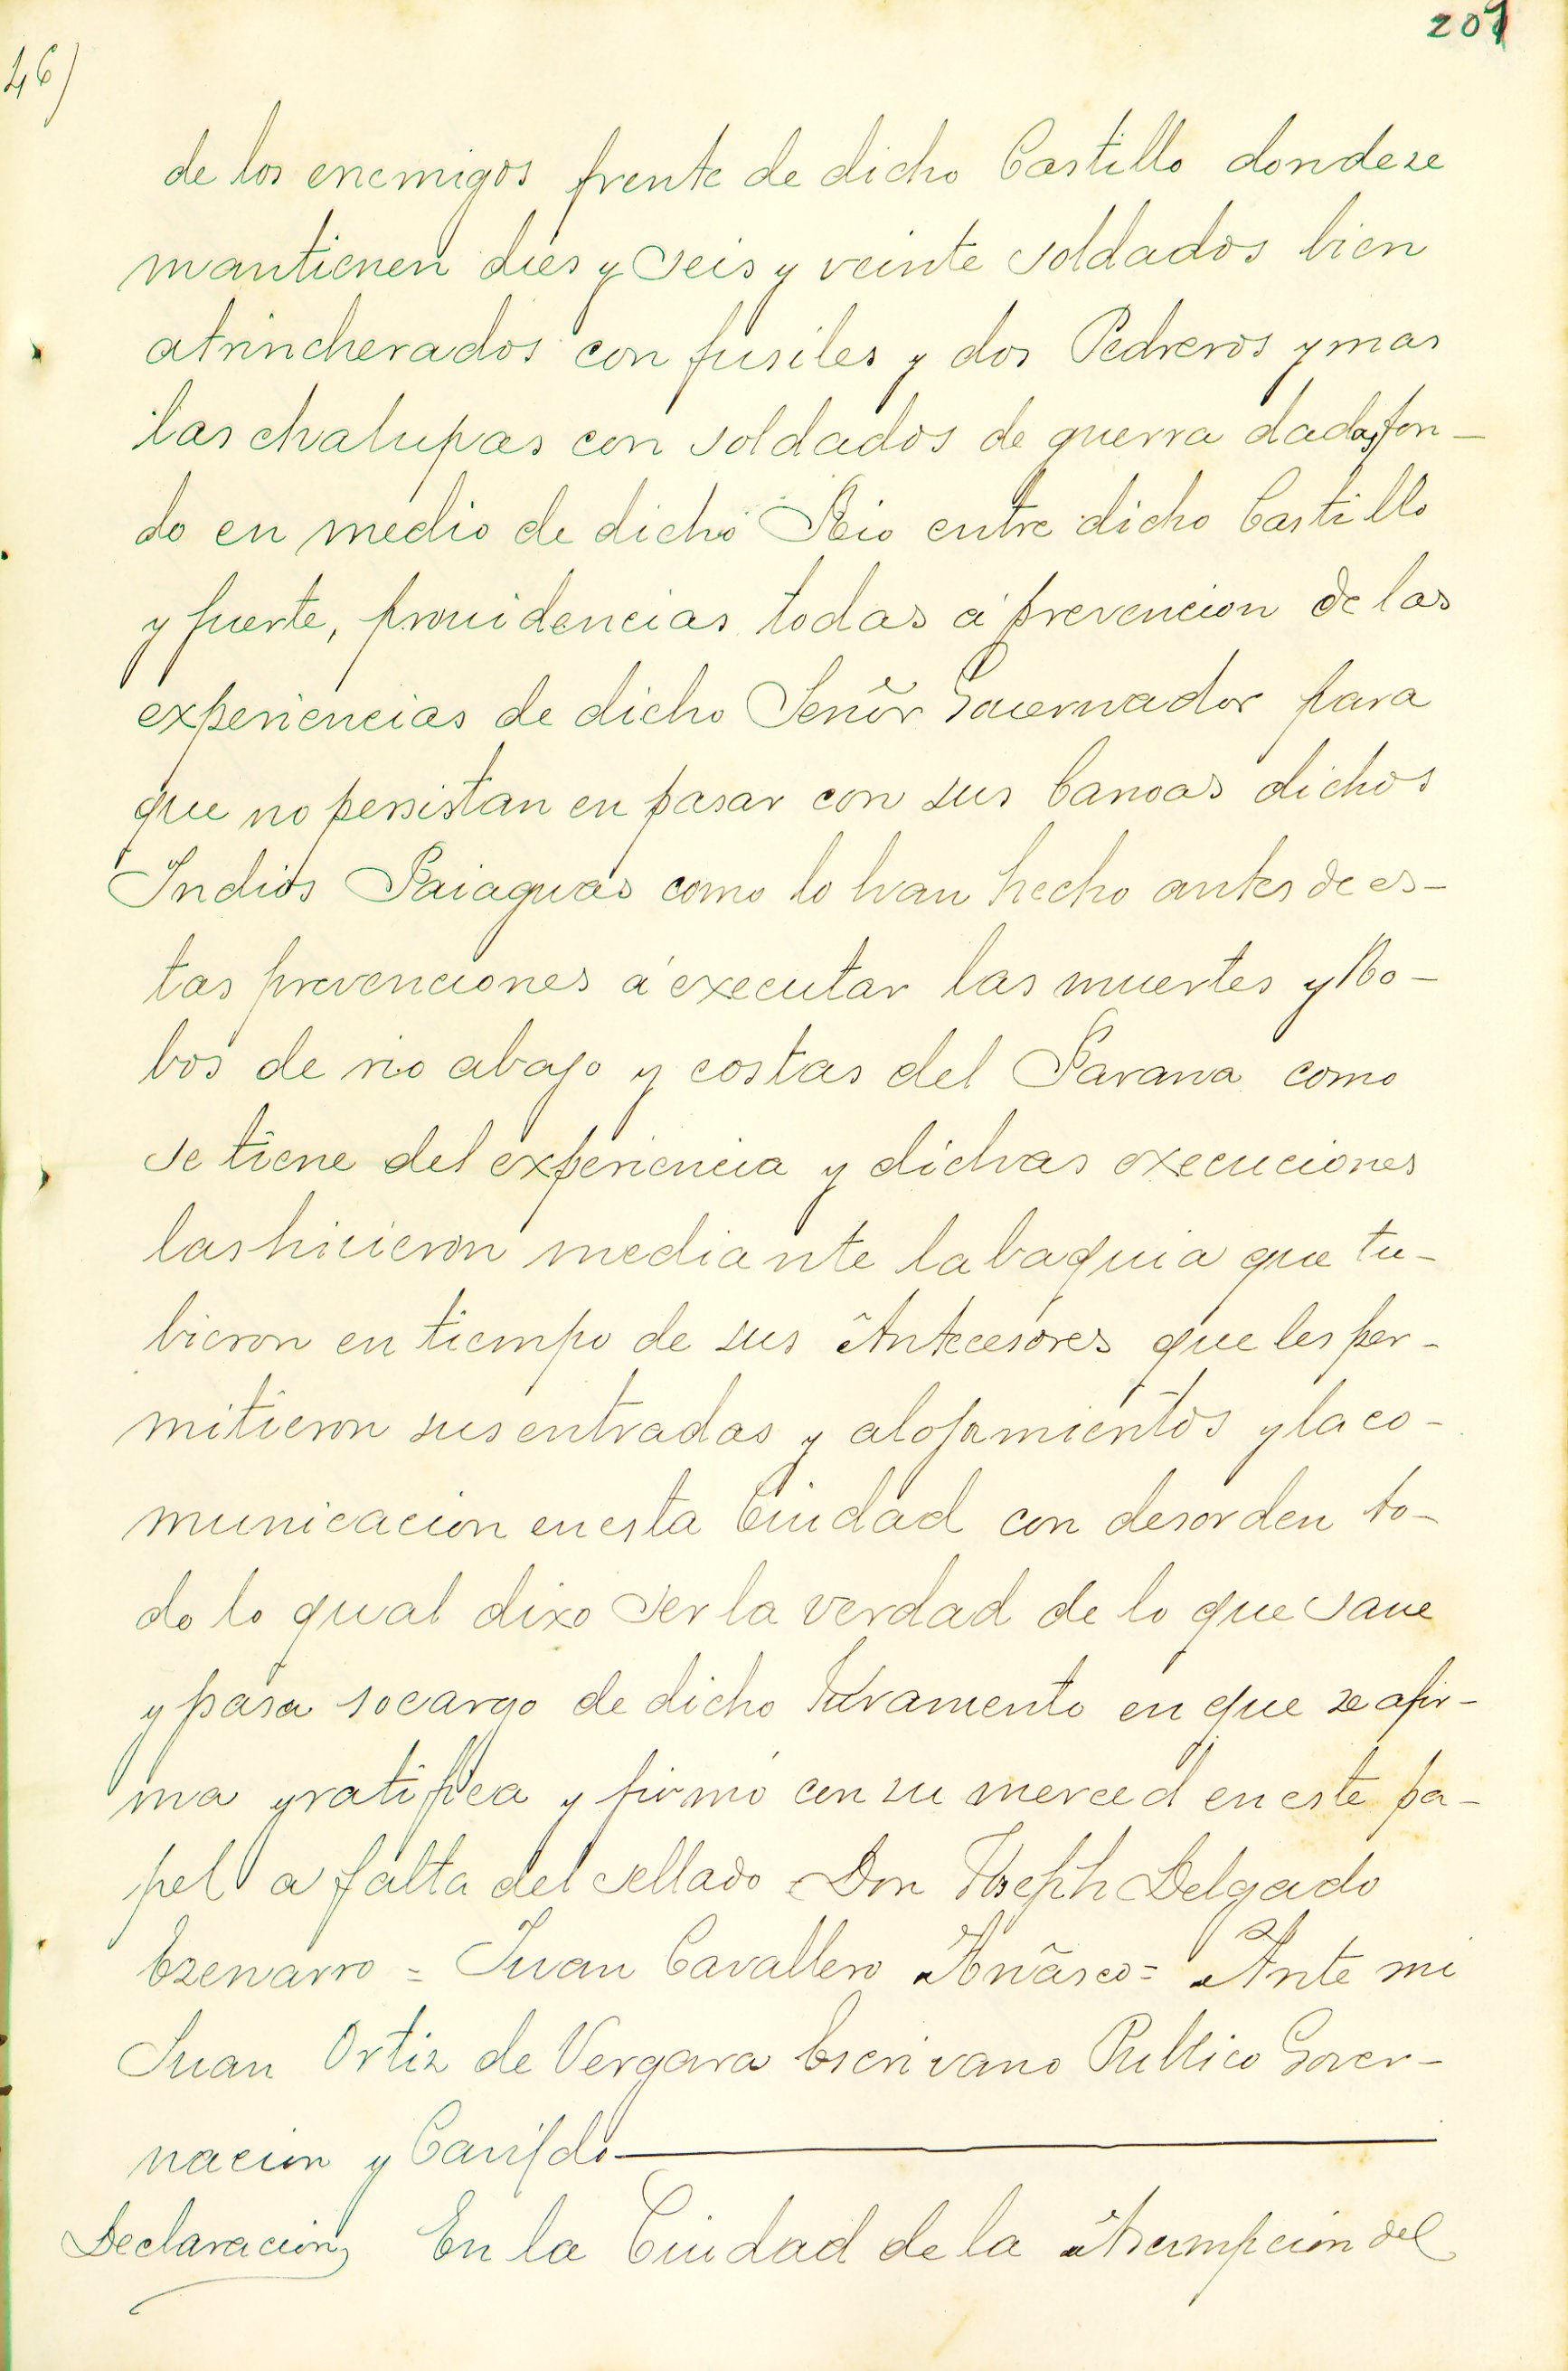 209
46)
de los enemigos frente de dicho Castillo donde se
mantienen dies y seis y veinte soldados bien
atrincherados con fusiles y dos Pedreros y mas
las chalupas con soldados de guerra dadas fon-
do en medio de dicho Rio entre dicho Castillo
y fuerte, prouidencias todas á prevencion de las
experiencias de dicho Señor Gouernador para
que no persistan en pasar con sus Canoas dichos
Indios Paiaguas como lo han hecho antes de es-
tas prevenciones á executar las muertes y Ro-
bos de rio abajo y costas del Parana como
se tiene del experiencia y dichas execuciones
las hicieron mediante la baquia que tu-
bieron en tiempo de sus Antecesores que les per-
mitieron sus entradas y alojamientos y la co-
municacion en esta Ciudad con desorden to-
do lo qual dixo ser la verdad de lo que saue
y pasa socargo de dicho Juramento en que se afir-
ma y ratifica y firmó con su merced en este pa-
pel a falta del sellado Don Joseph Delgado
Ezenarro = Juan Cavallero Añasco = Ante mi
Juan Ortiz de Vergara Escrivano Publico Gover-
nacion y Cavildo
Declaracion En la Ciudad de la Assumpcion del